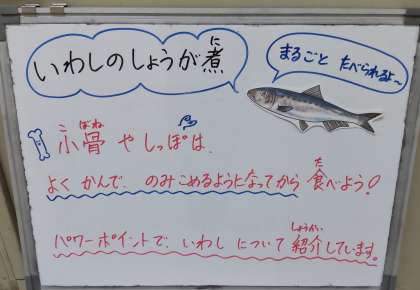 いわしのしょうが煮
に
まるごと たべられるよ~
こ ばね
小骨 や しっぽは、
よく かんで、 のみこめるようになってから 食べよう!
た
パワーポイントで、いわし について 紹介しています。
しょうかい